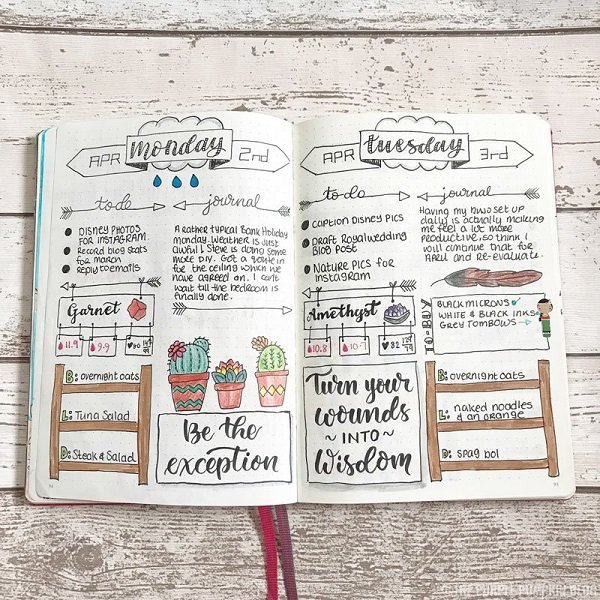 APR
Monday
2nd
to do
journal
DISNEY PHOTOS
FOR INSTAGRAM.
Record blog stats
for march
reply to emails
A rather typical Bank Holiday
monday. Weather is just
awful! Steve is doing some
more DIY. Got a quote in
for the ceiling which we
have agreed on. I can't
wait till the bedroom is
finally done.
Garnet
11.9
9.9
90
B: overnight oats
L: Tuna Salad
D: Steak & Salad
Be the
exception
APR
tuesday
3rd
to do
journal
CAPTION DISNEY PICS
Draft Royal wedding
Blog Post
Nature PICS for
Instagram
Having my two set up
daily is actually making
me feel a lot more
productive, so think I
will continue that for
April and re-evaluate.
Amethyst
10.8
10.7
82
TO-BUY
BLACK MICRONS
WHITE & BLACK INKS
GREY TOMBOWS
Turn your
wounds
~ INTO ~
Wisdom
B: overnight oats
L: naked noodles
& an orange
D: spag bol
THE PURPLE PUMPKIN BLOG